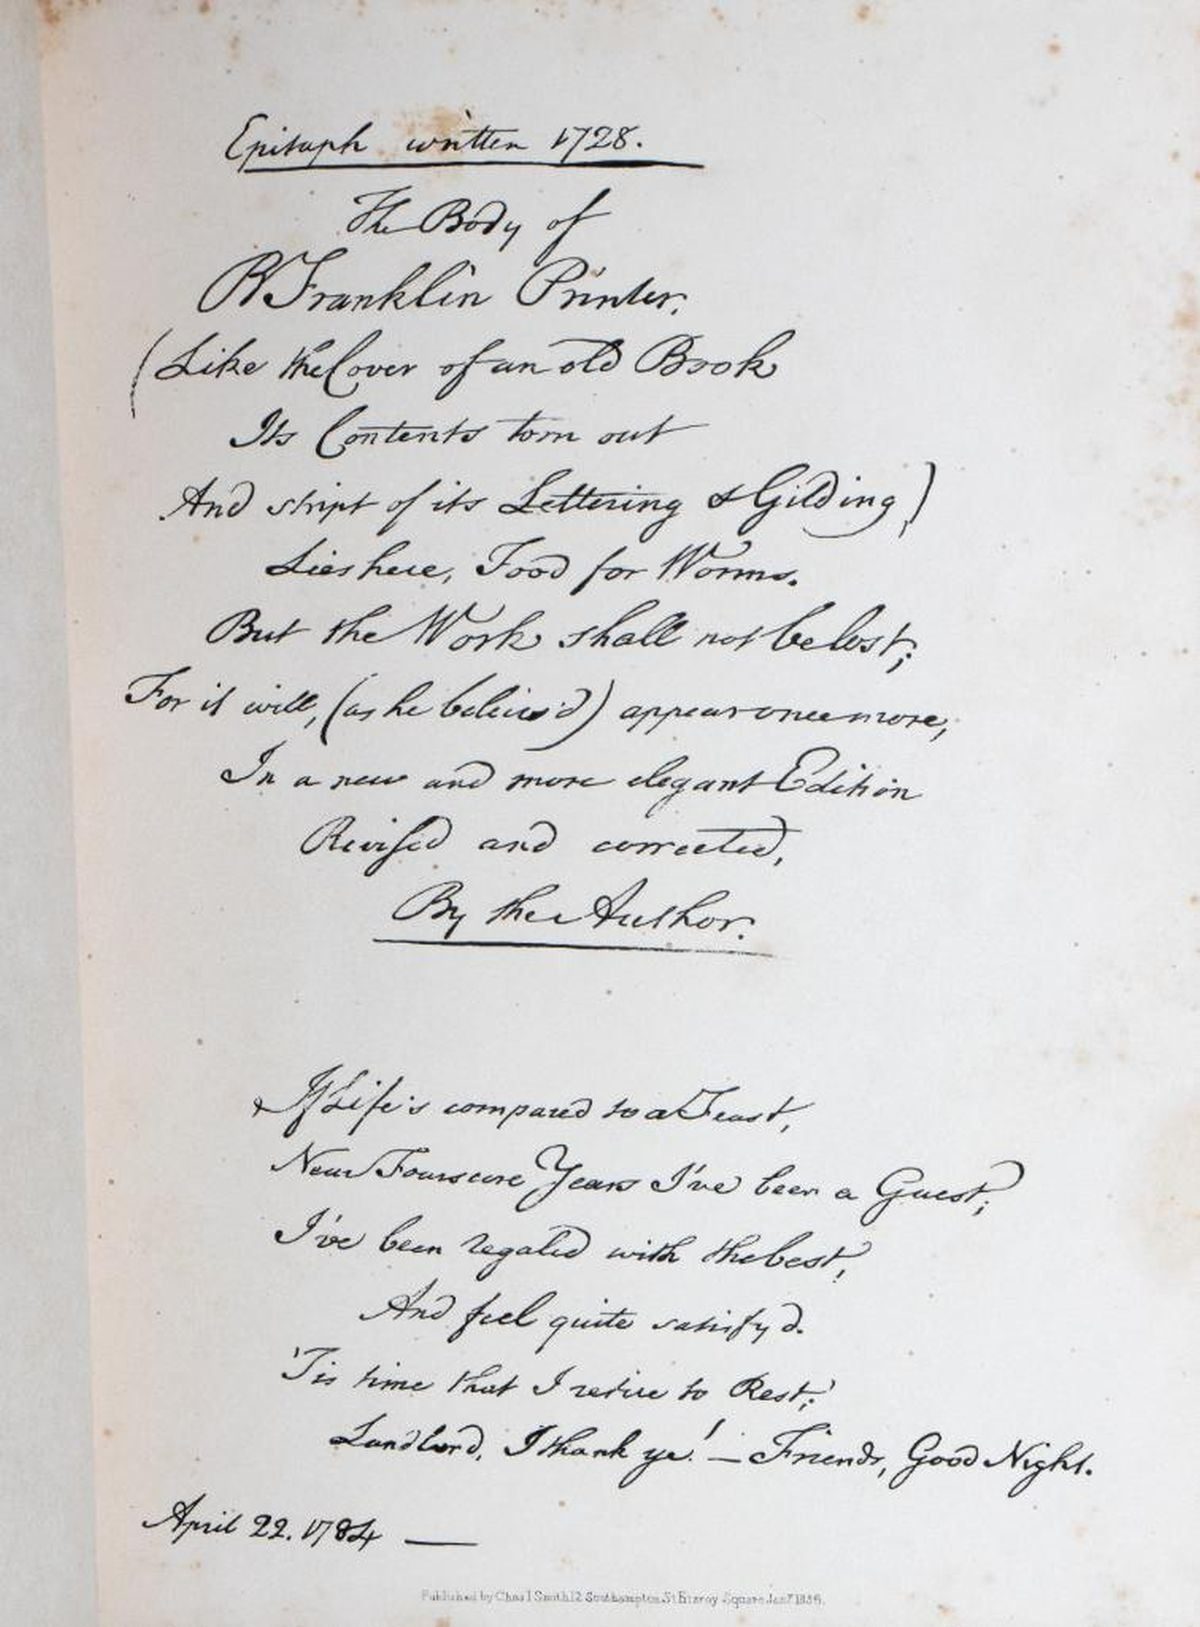 Epitaph written 1728.
The Body of
B Franklin Printer,
(Like the Cover of an old Book
Its Contents torn out
And stript of its Lettering & Gilding)
Lies here, Food for Worms.
But the Work shall not be lost;
For it will, (as he believ'd) appear once more,
In a new and more elegant Edition
Revised and corrected,
By the Author.
If Life's compared to a Feast,
Near Fourscore Years I've been a Guest;
I've been regaled with the best,
And feel quite satisfyd.
'Tis time that I retire to Rest;
Landlord, I thank ye! — Friends, Good Night.
April 22. 1784 —
Published by Chas I Smith 12 Southampton St Fitzroy Square Jany 1836.